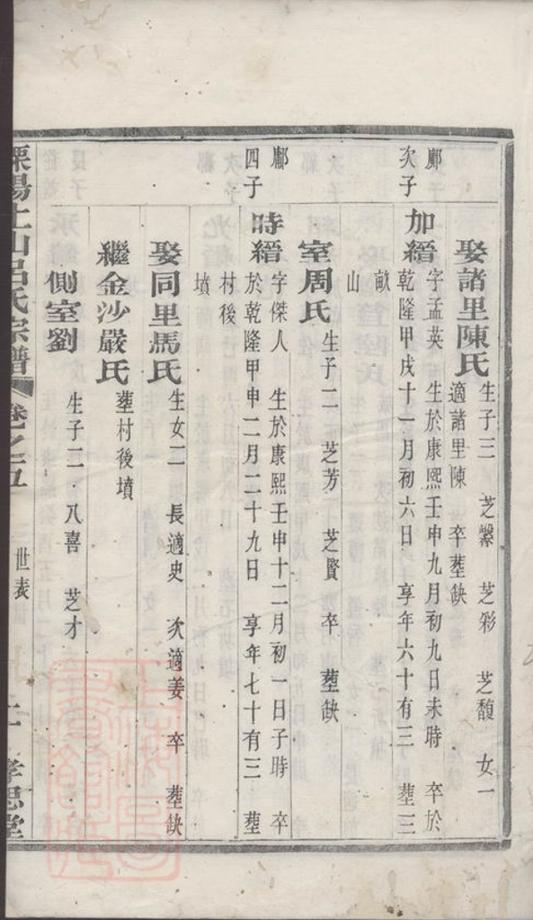 娶諸里陳氏
生子三 芝縏 芝彩 芝馥 女一
適諸里陳 卒塟缺
鄺次子
加縉
字孟英 生於康熙壬申九月初九日未時 卒於
乾隆甲戌十一月初六日 享年六十有三 塟三
獻
山
室周氏
生子二 芝芳 芝賢 卒 塟缺
鄺四子
時縉
字傑人 生於康熙壬申十二月初一日子時 卒
於乾隆甲申二月二十九日 享年七十有三 塟
村後
墳
娶同里馬氏
生女二 長適史 次適姜 卒 塟缺
繼金沙嚴氏
塟村後墳
側室劉
生子二 八喜 芝才
溧陽上山呂氏宗譜 卷之五 世表 孝思堂